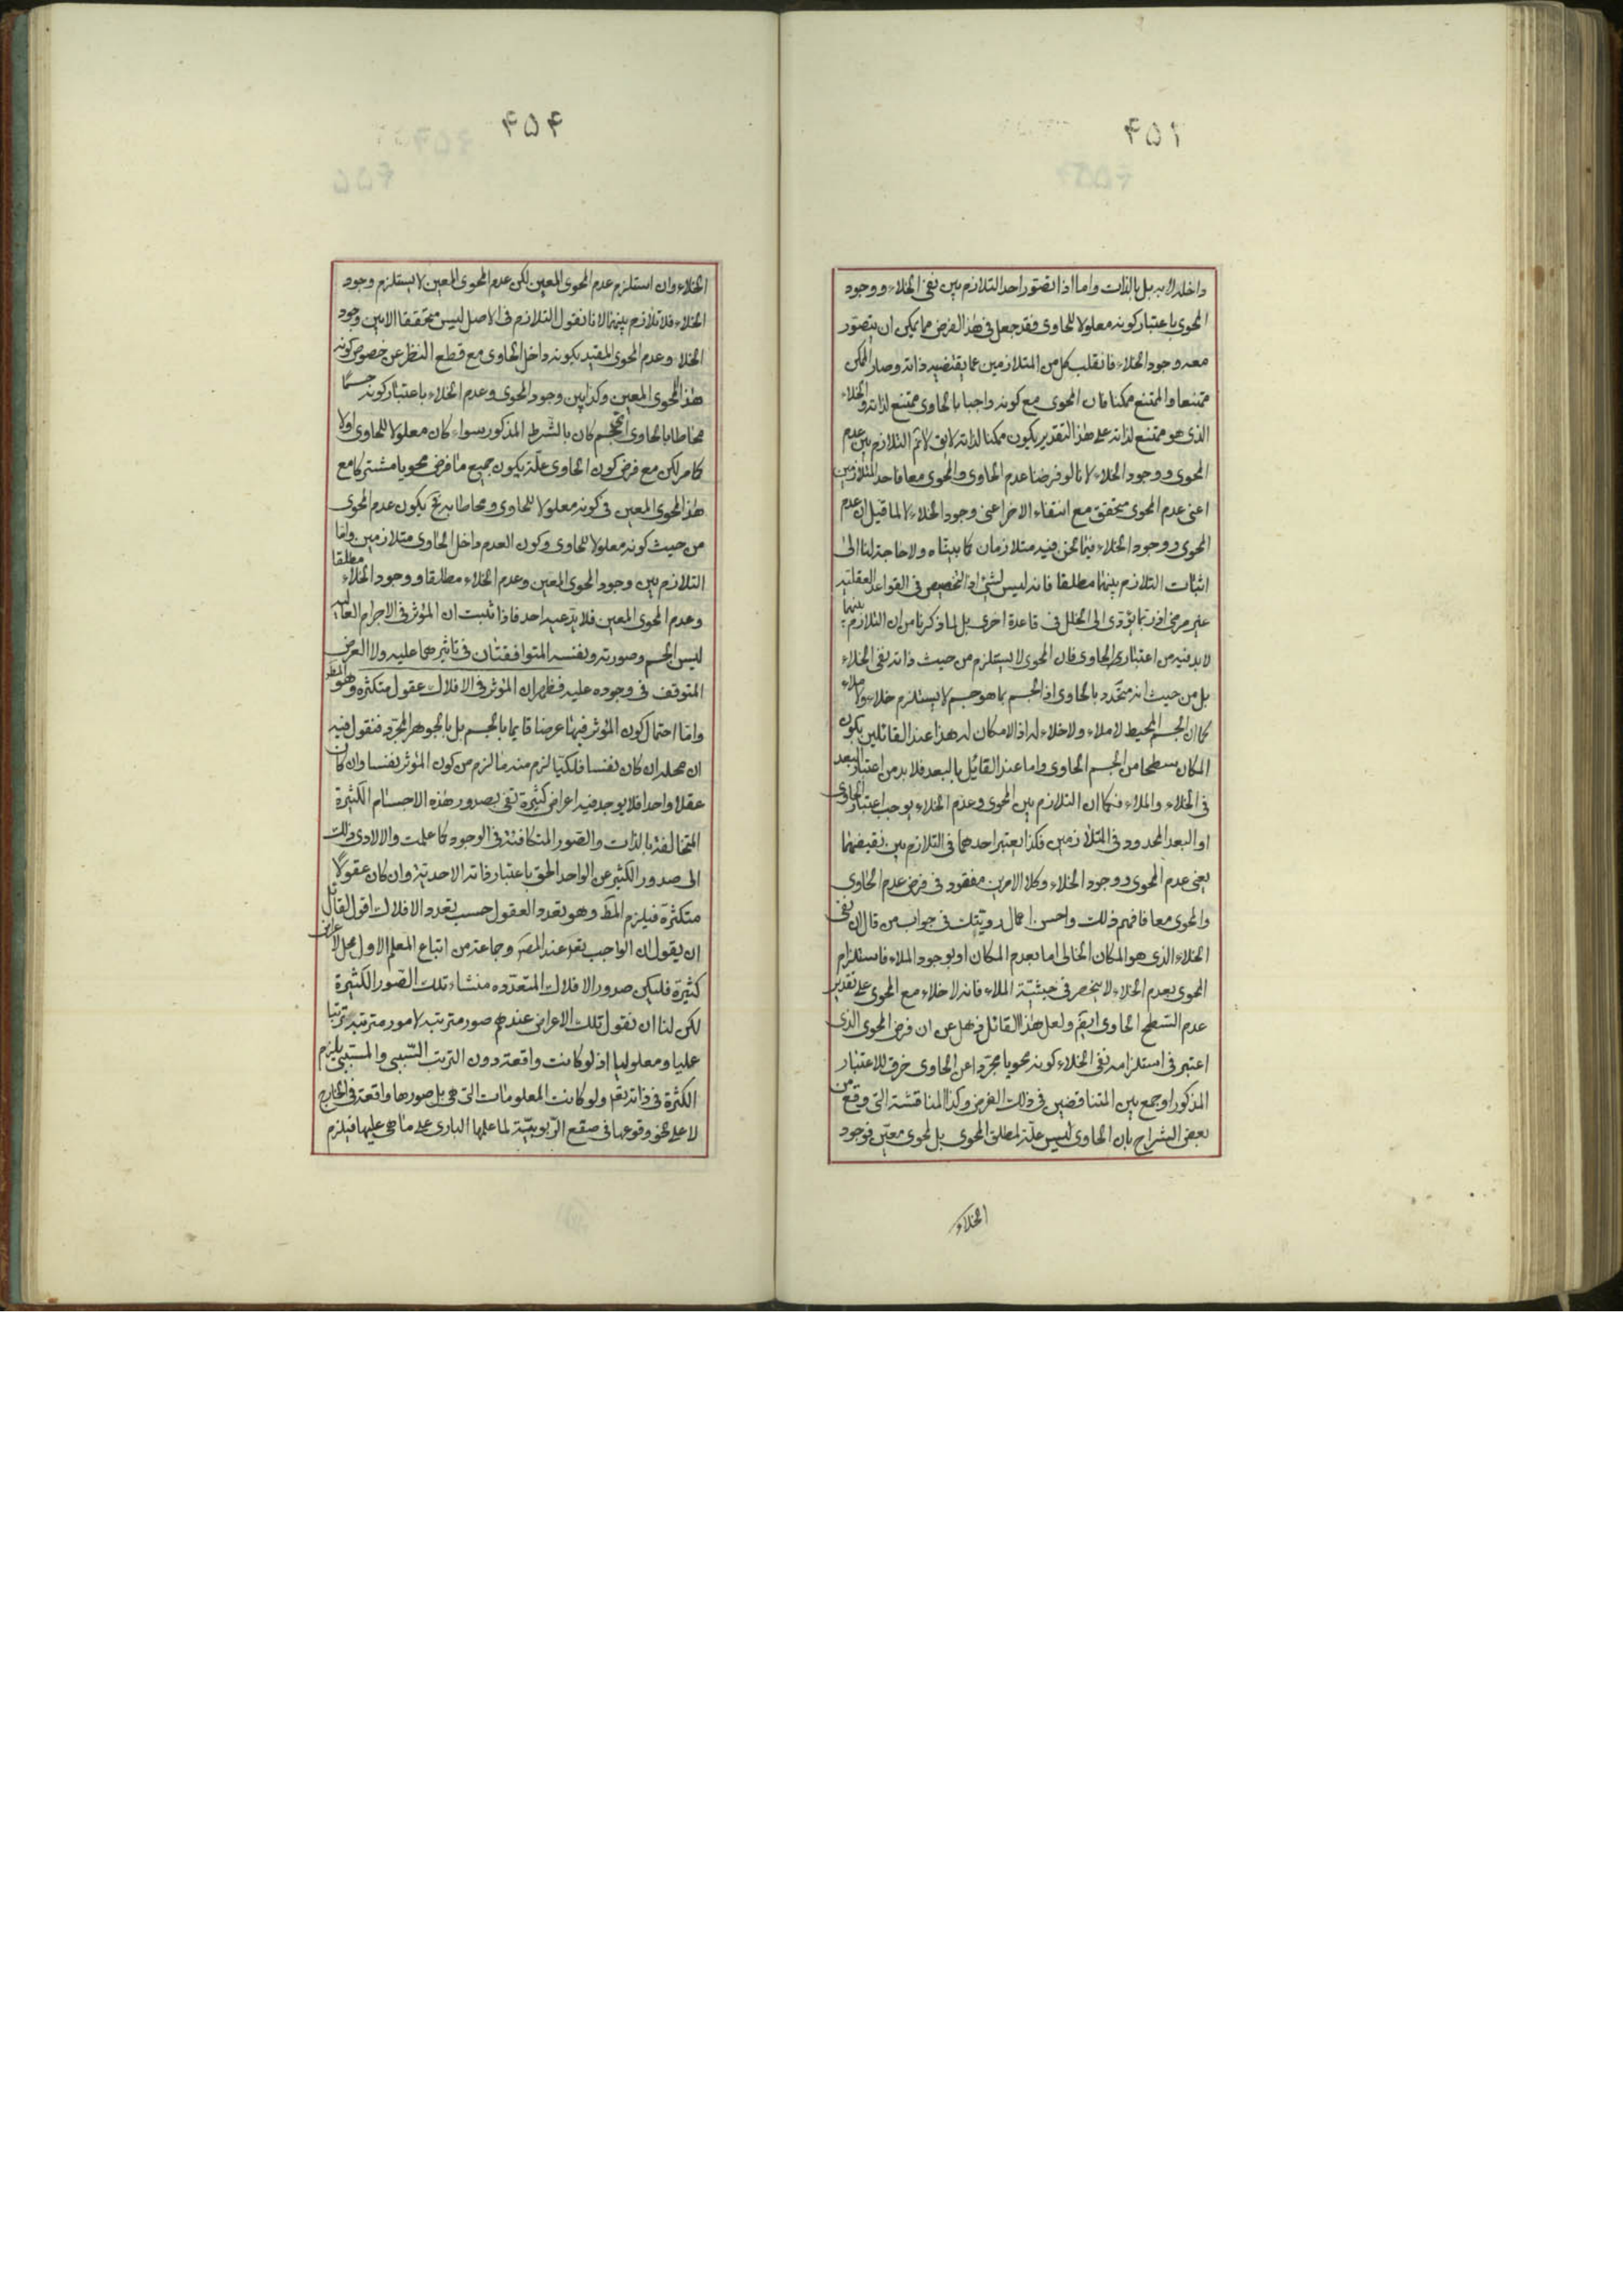 ۴۵۱
داخله لا به بل بالذات واما اذا تصور احد التلازم بين نفى الخلاء ووجود
المحوى باعتبار كونه معلولا للحاوى فقد جعل فى هذا الفرض مما يمكن ان يتصور
معه وجود الخلاء فانقلب كل من المتلازمين عما يقتضيه ذاته وصار الممكن
ممتنعا والممتنع ممكنا فان المحوى مع كونه واجبا بالحاوى ممتنع لذاته والخلاء
الذى هو ممتنع لذاته على هذا التقدير يكون ممكنا لذاته لا يق لا ثم التلازم بين عدم
المحوى ووجود الخلاء لانا لو فرضنا عدم الحاوى والمحوى معا فاحد المتلازمين
اعنى عدم المحوى متحقق مع انتفاء الاخر اعنى وجود الخلاء لا لما قيل ان عدم
المحوى ووجود الخلاء فيما نحن فيه متلازمان كما بيناه ولا حاجة لنا الى
اثبات التلازم بينهما مطلقا فانه ليس لشئ اذ التخصيص فى القواعد العقلية
غير مرضى اذ ربما يؤدى الى الخلل فى قاعدة اخرى بل لما ذكرنا من ان التلازم بينهما
لا بد فيه من اعتبار الحاوى فان المحوى لا يستلزم من حيث ذاته نفى الخلاء
بل من حيث انه متحدد بالحاوى اذ الجسم بما هو جسم لا يستلزم خلاء ولا ملاء
كما ان الجسم المحيط لا ملاء ولا خلاء له اذ لا مكان له هذا عند القائلين بكون
المكان سطحا من الجسم الحاوى واما عند القائل بالبعد فلا بد من اعتبار البعد
فى الخلاء والملاء فكما ان التلازم بين المحوى وعدم الخلاء يوجب اعتبار الحاوى
او البعد المحدود فى المتلازمين فكذا يعتبر احدهما فى التلازم بين نقيضهما
يعنى عدم المحوى ووجود الخلاء وكلا الامرين مفقود فى فرض عدم الحاوى
والمحوى معا فافهم ذلك واحسن اعمال رويتك فى جواب من قال ان نفى
الخلاء الذى هو المكان الخالى اما بعدم المكان او بوجود الملاء فاستلزام
المحوى بعدم الخلاء لا ينحصر فى حيثية الملاء فانه لا خلاء مع المحوى على تقدير
عدم السطح الحاوى ايضم ولعل هذا القائل ذهل عن ان فرض المحوى الذى
اعتبر فى استلزامه نفى الخلاء كونه محويا مجردا عن الحاوى خرق للاعتبار
المذكور او جمع بين المتناقضين فى ذلك الفرض وكذا المناقشة التى وقع من
بعض الشراح بان الحاوى ليس علة لمطلق المحوى بل لمحوى معين فوجود
الخلاء
۴۵۴
الخلاء وان استلزم عدم المحوى المعين لكن عدم المحوى المعين لا يستلزم وجود
الخلاء فلا تلازم بينهما لانا نقول التلازم فى الاصل ليس متحققا الا بين وجود
الخلاء وعدم المحوى المقيد بكونه داخل الحاوى مع قطع النظر عن خصوص كونه
هذا المحوى المعين وكذا بين وجود المحوى وعدم الخلاء باعتبار كونه جسما
محاطا بالحاوى اى جسم كان بالشرط المذكور سواء كان معلولا للحاوى اولا
كما مر لكن مع فرض كون الحاوى علة يكون جميع ما فرض محويا مشتركا مع
هذا المحوى المعين فى كونه معلولا للحاوى ومحاطا به فح يكون عدم المحوى
من حيث كونه معلولا للحاوى وكون العدم داخل الحاوى متلازمين واما
التلازم بين وجود المحوى المعين وعدم الخلاء مطلقا ووجود الخلاء مطلقا
وعدم المحوى المعين فلا يدعيه احد فاذا ثبت ان المؤثر فى الاجرام العالية
ليس الجسم وصورته ونفسه المتوافقتان فى تاثيرهما عليه ولا العرض
المتوقف فى وجوده عليه فظهر ان المؤثر فى الافلاك عقول متكثرة وهو المط
واما احتمال كون المؤثر فيها عرضا قايما بالجسم بل بالجوهر المجرد فنقول فيه
ان محله ان كان نفسا فلكيا لزم منه ما لزم من كون المؤثر نفسا وان كان
عقلا واحدا فلا يوجد فيه اعراض كثيرة تفى بصدور هذه الاجسام الكثيرة
المتخالفة بالذات والصور المتكافئة فى الوجود كما علمت والا لادى ذلك
الى صدور الكثير عن الواحد الحق باعتبار ذاته الاحدية وان كان عقولا
متكثرة فيلزم المط وهو تعدد العقول حسب تعدد الافلاك اقول لقائل
ان يقول ان الواجب تعم عند المصر وجماعة من اتباع المعلم الاول محل لاعراض
كثيرة فليكن صدور الافلاك المتعدده منشاء تلك الصور الكثيرة
لكن لنا ان نقول تلك الاعراض عندهم صور مترتبة لامور مترتبة ترتبا
عليا ومعلوليا اذ لو كانت واقعة دون الترتب السببى والمسببى يلزم
الكثرة فى ذاته تعم ولو كانت المعلومات التى هى بل صورها واقعة فى الخارج
لا على نحو وقوعها فى صقع الربوبية لما علمها البارى على ما هى عليها فيلزم